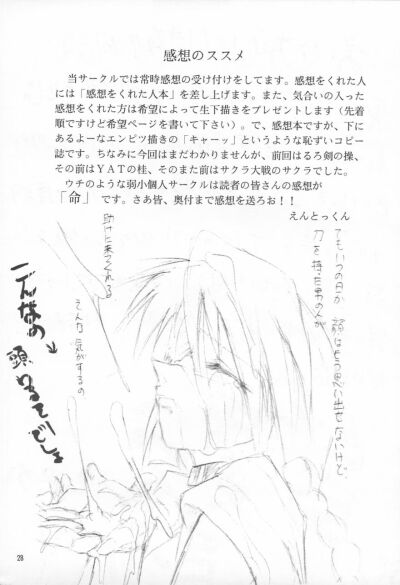 感想のススメ
当サークルでは常時感想の受け付けをしてます。感想をくれた人
には「感想をくれた人本」を差し上げます。また、気合いの入った
感想をくれた方は希望によって生下描きをプレゼントします（先着
順ですけど希望ページを書いて下さい）。で、感想本ですが、下に
あるよーなエンピツ描きの「キャーッ」というような恥ずいコピー
誌です。ちなみに今回はまだわかりませんが、前回はるろ剣の操、
その前はＹＡＴの桂、そのまた前はサクラ大戦のサクラでした。
ウチのような弱小個人サークルは読者の皆さんの感想が
「命」です。さあ皆、奥付まで感想を送ろお！！
えんとっくん
でもいつの日か
顔はもう思い出せないけど、
刀を持った男の人が
助けに来てくれる
そんな気がするの
こんなの→
頭わるいでしょ
28